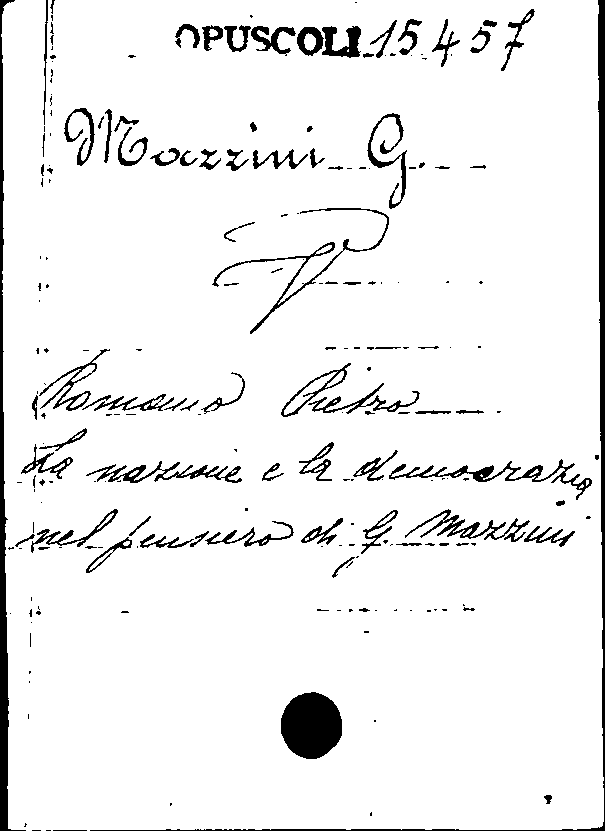 OPUSCOLI 15457
Mazzini G.
V
Romano Pietro
La nazione e la democrazia
nel pensiero di G. Mazzini